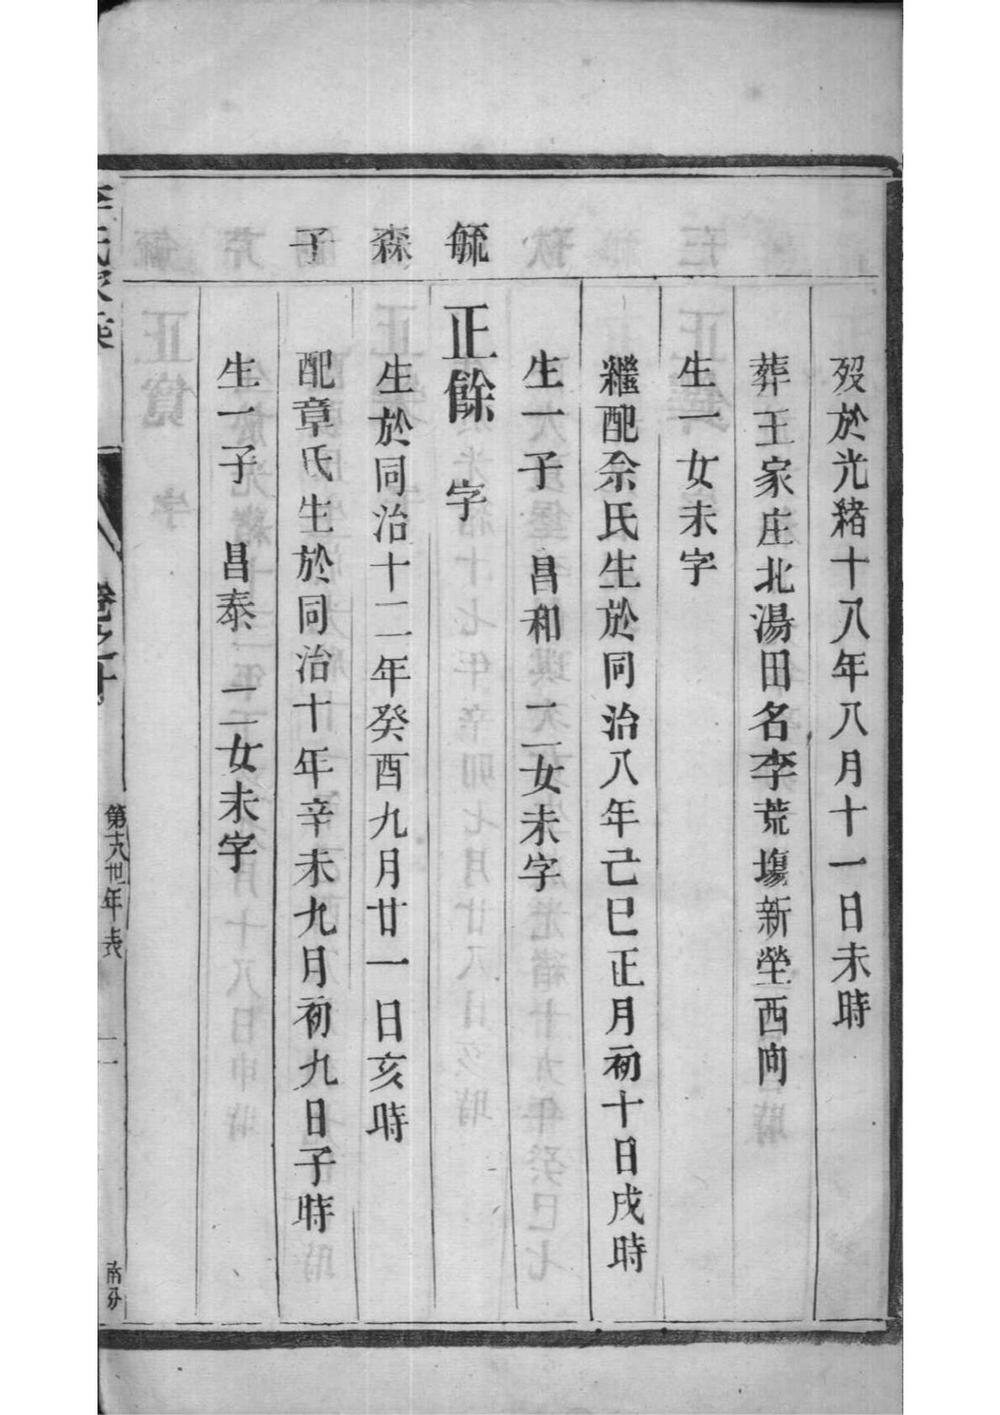 歿於光緒十八年八月十一日未時
葬王家庄北湯田名李荒塲新塋西向
生一女未字
繼配佘氏生於同治八年己巳正月初十日戌時
生一子　昌和　二女未字
毓
正餘　字
森
生於同治十二年癸酉九月廿一日亥時
子
配章氏生於同治十年辛未九月初九日子時
生一子　昌泰　二女未字
李氏家乘
第十八世年表